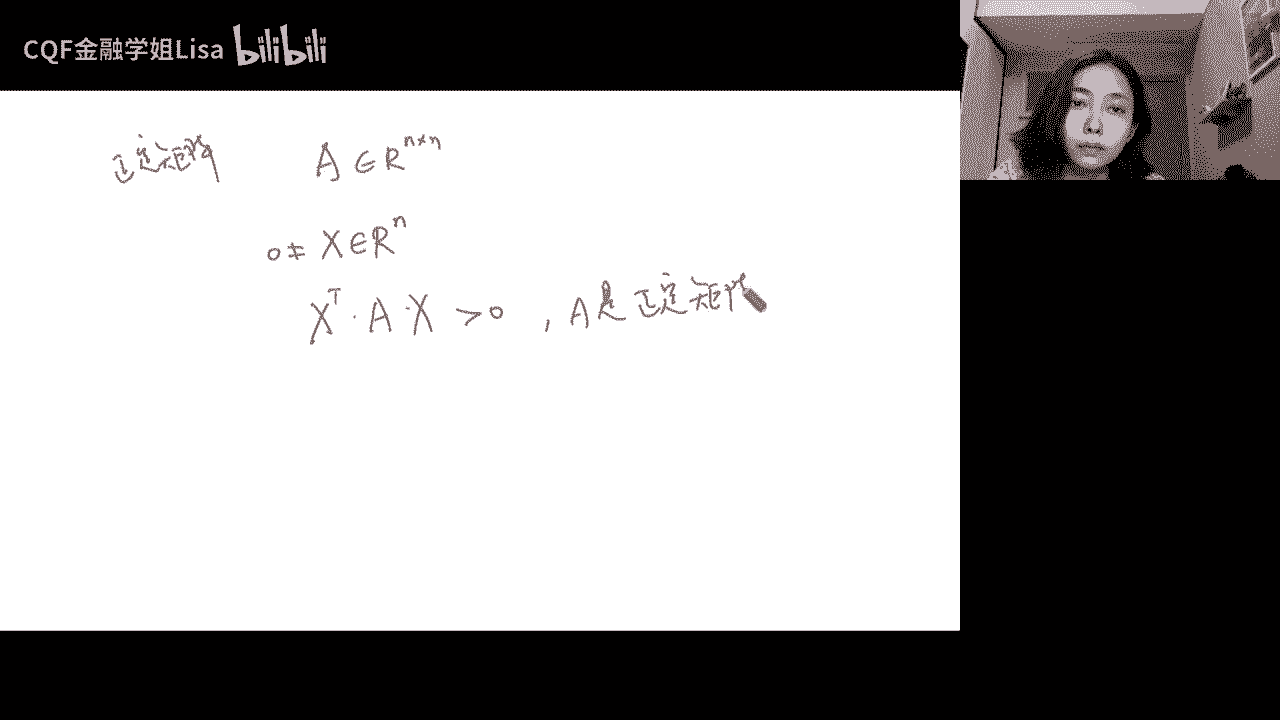 CQF金融学姐Lisa bilibili
正定矩阵 A ∈ R^{n×n}
0 ≠ X ∈ R^n
X^T · A · X > 0 , A是正定矩阵